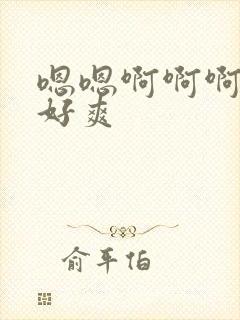 嗯嗯啊啊啊
好爽
俞平伯